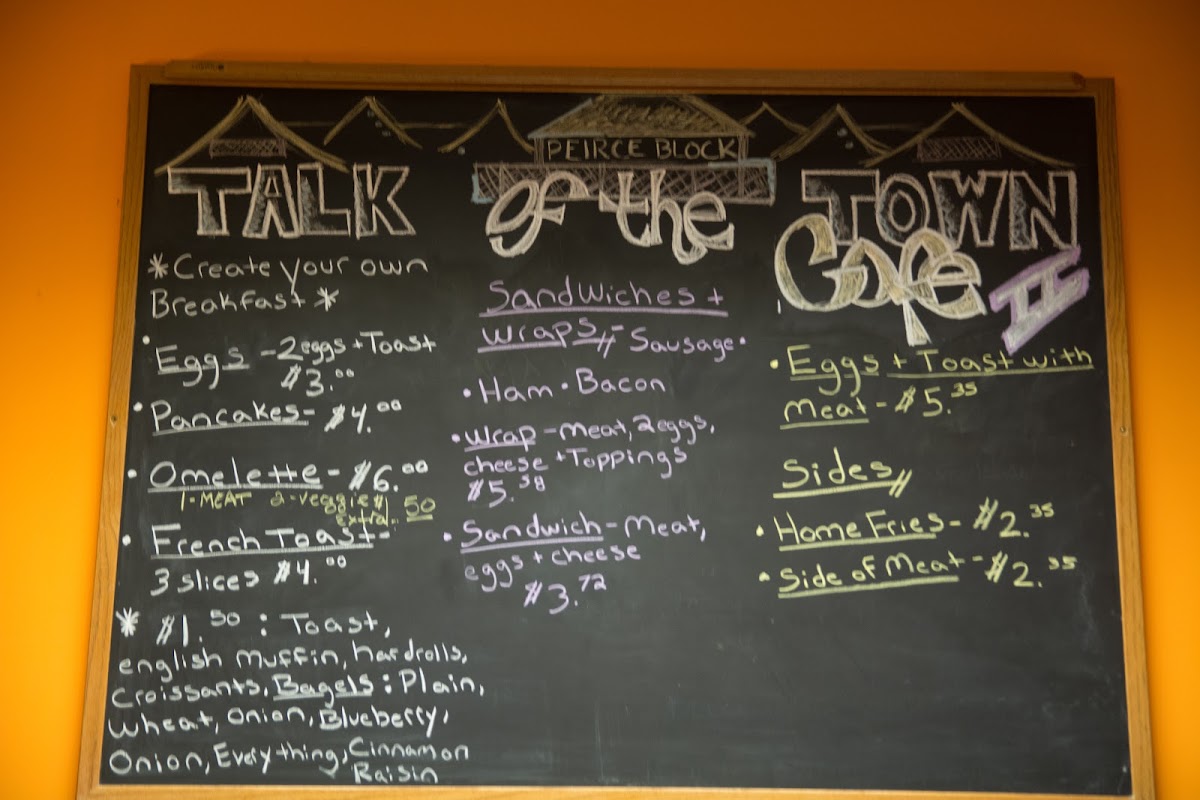 PEIRCE BLOCK
TALK of the TOWN
Cafe II
*Create your own
Breakfast *
• Eggs - 2 eggs + Toast
$3.00
• Pancakes - $4.00
• Omelette - $6.00
1-MEAT 2-veggie $1.50
Extra..
• French Toast -
3 slices $4.00
* $1.50 : Toast,
english muffin, hardrolls,
Croissants, Bagels: Plain,
Wheat, Onion, Blueberry,
Onion, Everything, Cinnamon
Raisin
Sandwiches +
Wraps - Sausage •
• Ham • Bacon
• Wrap - meat, 2 eggs,
cheese + Toppings
$5.58
• Sandwich - Meat,
eggs + cheese
$3.72
• Eggs + Toast with
Meat - $5.35
Sides
• Home Fries - $2.35
• Side of Meat - $2.35